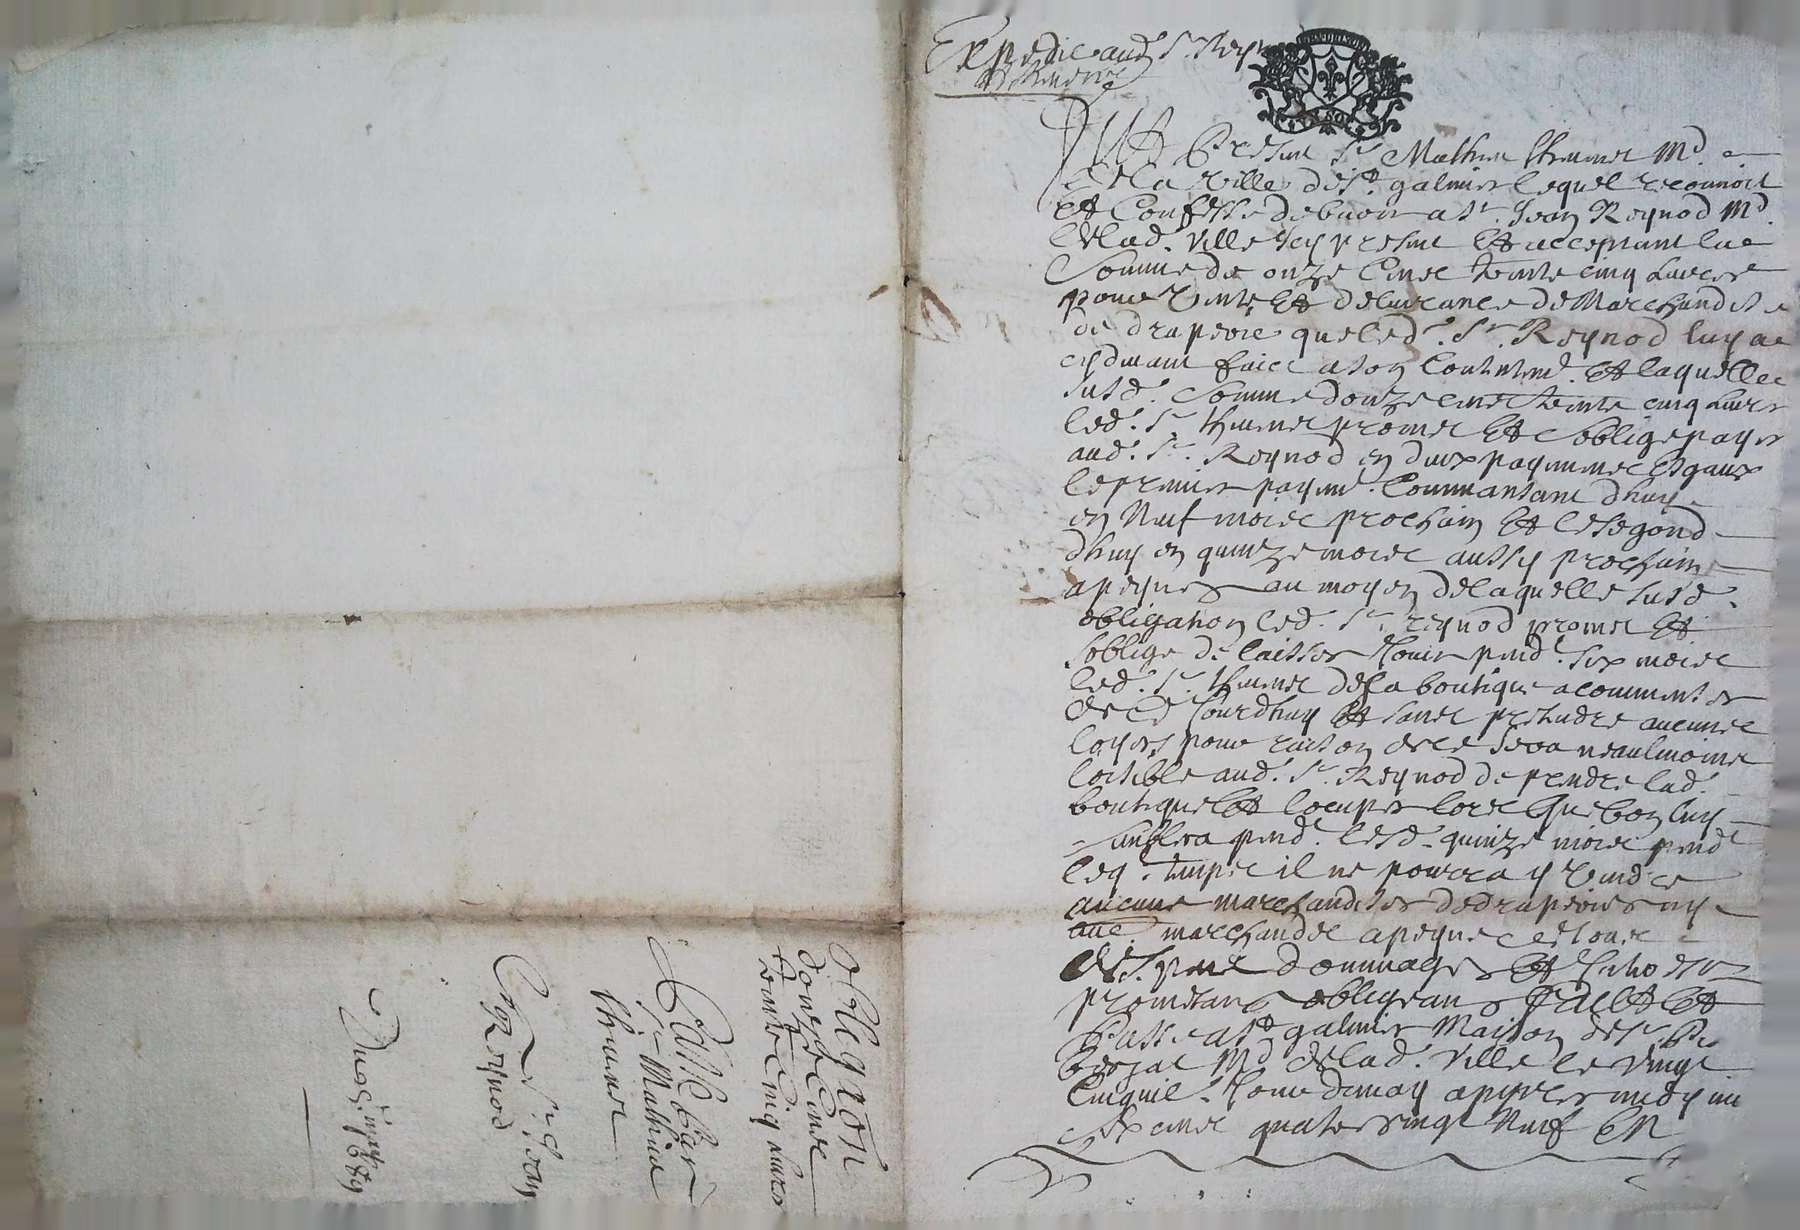 Expedié aud. Sr. Reynod
Fut Présent Sr. Mathieu thiunet Md.
de la ville de St. galmier lequel reconnoit
et Confesse debvoir a Sr. Jean Reynod Md.
de lad. ville icy present et acceptant la
Somme de onze Cents trente cinq Livres
pour vente et delivrance de Marchandise
de draperie que led. Sr. Reynod luy a
cydevant faict a son Contentemt. et laquelle
susd. Somme donze cents trente cinq Livres
led. Sr. promet et soblige payer
aud. Sr. Reynod en deux payements esgaux
le premier payemt. Commansant dhuy
en Neuf mois prochain et le segond
dhuy en quinze mois aussy prochain
a peyne au moyen de laquelle susd.
obligation led. Sr. reynod promet et
soblige de laisser Jouir pendt. six mois
led. Sr. de sa boutique a commenser
de ce Jourdhuy et sans pretendre aucuns
loyers pour raison de ce sera neaulmoins
loisible aud. Sr. Reynod de prendre lad.
boutique et locuper lors que bon luy
semblera pend. lesd. quinze mois pendt
leq. temps il ne pourra y vendre
aucune marchandises de draperies ny
marchandes a peyne de tous
despens dommages et Interestz
prometans obligeans &
Passé a St galmier Maison de Sr.
Md de lad. ville le vingt
Cinquie. Jour de may appres midy mil
six cents quatre vingt Neuf
Obligaon
donze Cents
trente Cinq livres
Passée Par
Sr Mathieu
A Sr Jean
Reynod
Du 25 may
1689